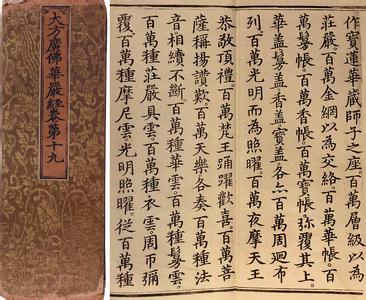 大方廣佛華嚴經卷第十九
作寶蓮華藏師子之座。百萬層級以為
莊嚴。百萬金網以為交絡。百萬華帳。百
萬鬘帳。百萬香帳。百萬寶帳。張施其上。
華蓋鬘蓋香蓋寶蓋。各亦百萬周迴布
列。百萬光明而為照曜。百萬夜摩天王
恭敬頂禮。百萬梵王踊躍歡喜。百萬菩
薩稱揚讚歎。百萬天樂各奏百萬種法
音相續不斷。百萬種華雲。百萬種鬘雲。
百萬種莊嚴具雲。百萬種衣雲。周帀彌
覆。百萬種摩尼雲。光明照曜。從百萬種